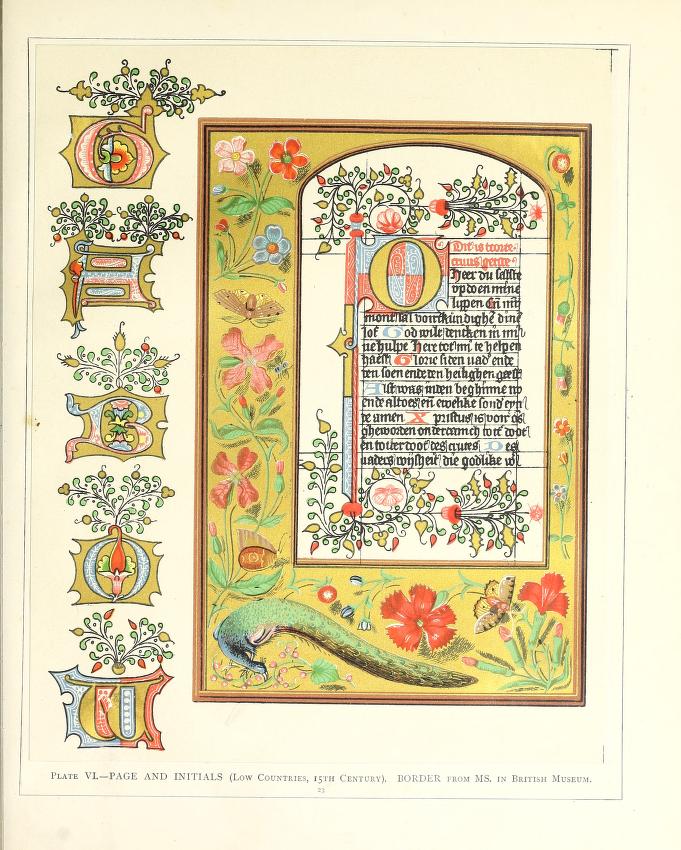 G
A
B
O
U
O
Dit is vorre
cruus getide
Heer du salste
op doen mine
lippen En mīn
mont sal voirtkundighē dine
lof God wilt dencken in mi
ne hulpe Here tot mi te helpen
haest Glorie si den vad' ende
den soen ende den heilighen geest
Alst was inden beghinne nv
ende altoes eñ ewelike sond' eyn
de amen Xpristus is vor ōs
gheworden onderdanich tot' doot
en totter doot des cruces Des
vaders wijsheit die godlike w
PLATE VI.—PAGE AND INITIALS (LOW COUNTRIES, 15TH CENTURY). BORDER FROM MS. IN BRITISH MUSEUM.
23